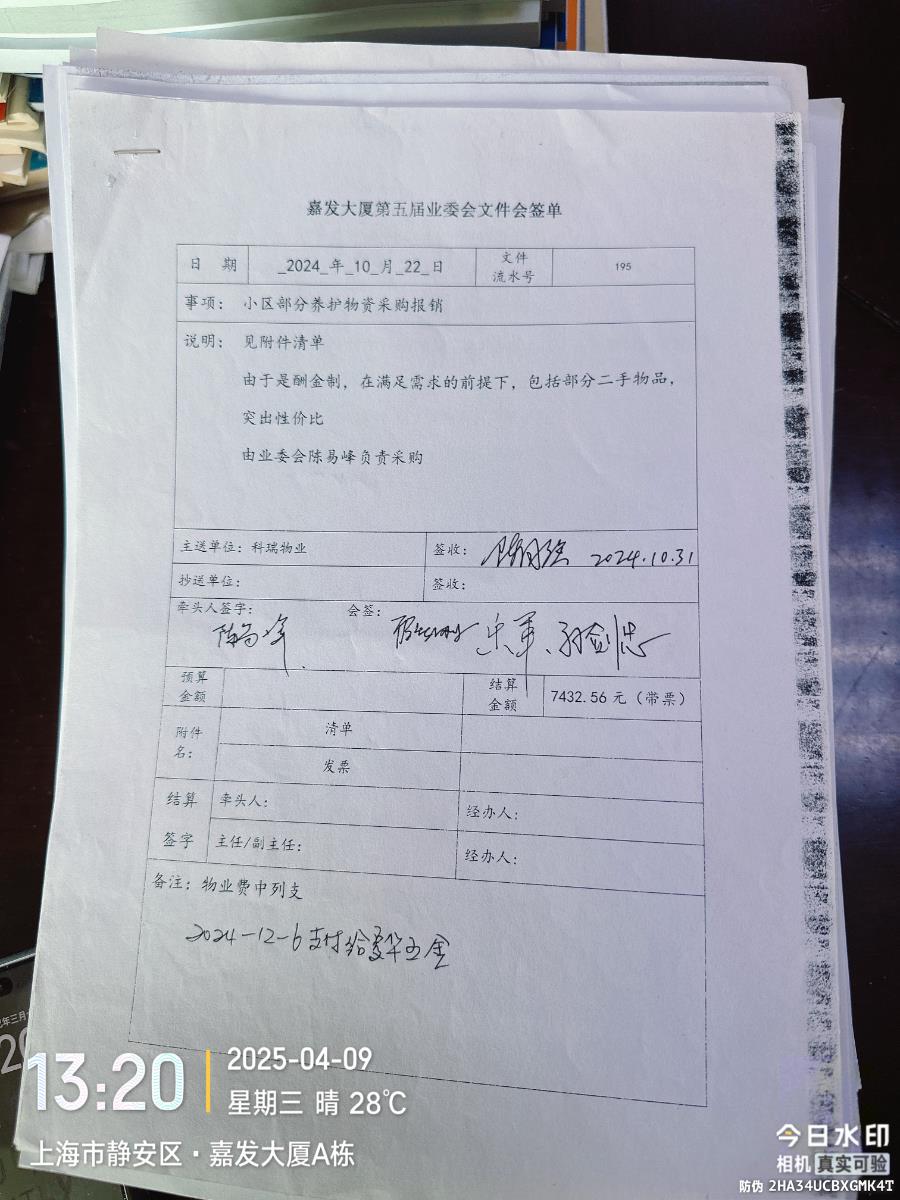 嘉发大厦第五届业委会文件会签单
日 期 _2024_年_10_月_22_日 文件流水号 195
事项： 小区部分养护物资采购报销
说明： 见附件清单
由于是酬金制，在满足需求的前提下，包括部分二手物品，
突出性价比
由业委会陈易峰负责采购
主送单位：科瑞物业 签收： 2024.10.31
抄送单位： 签收：
牵头人签字： 会签：
宋军、孙剑忠
预算金额 结算金额 7432.56 元（带票）
附件名： 清单
发票
结算签字 牵头人： 经办人：
主任/副主任： 经办人：
备注：物业费中列支
2024-12-6 支付给 五金
13:20
2025-04-09
星期三 晴 28℃
上海市静安区·嘉发大厦A栋
今日水印
相机 真实可验
防伪 2HA34UCBXGMK4T